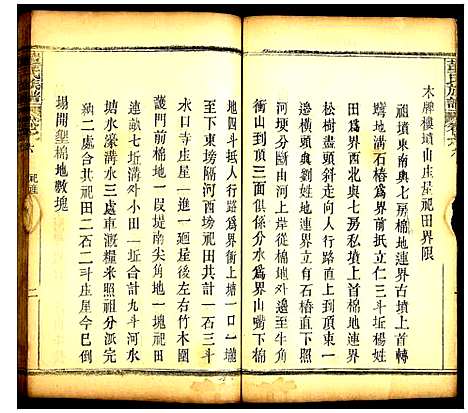 木牌樓墳山庄屋祀田界限
祖墳東南與七房棉地連界上首轉
田溝石樁為界前抵立仁三斗坵楊姓
田為界西北與七房私墳上首棉地連界
松樹盡頭斜走向人行路直上到頂
邊橫頭與劉姓連界有石樁直下照
河埂分斷自河上岸從棉地外邊至牛角
衝山到頂三面俱係分水為界山嘴下棉
地四斗抵人行路為界衝上塘一口一壋
至下東塝隔河祀田共計一石三斗
水口寺庄屋一進一廻屋後左右竹木園
護門前棉地一段堤南尖角地一塊祀田
連畝七坵溝外小田一坵合計九斗河水
塘水濠溝水三處車漑糧米照祖分派完
納二處合共祀田二石二斗庄屋今已倒
塌開墾棉地數塊
氏族譜
祀產